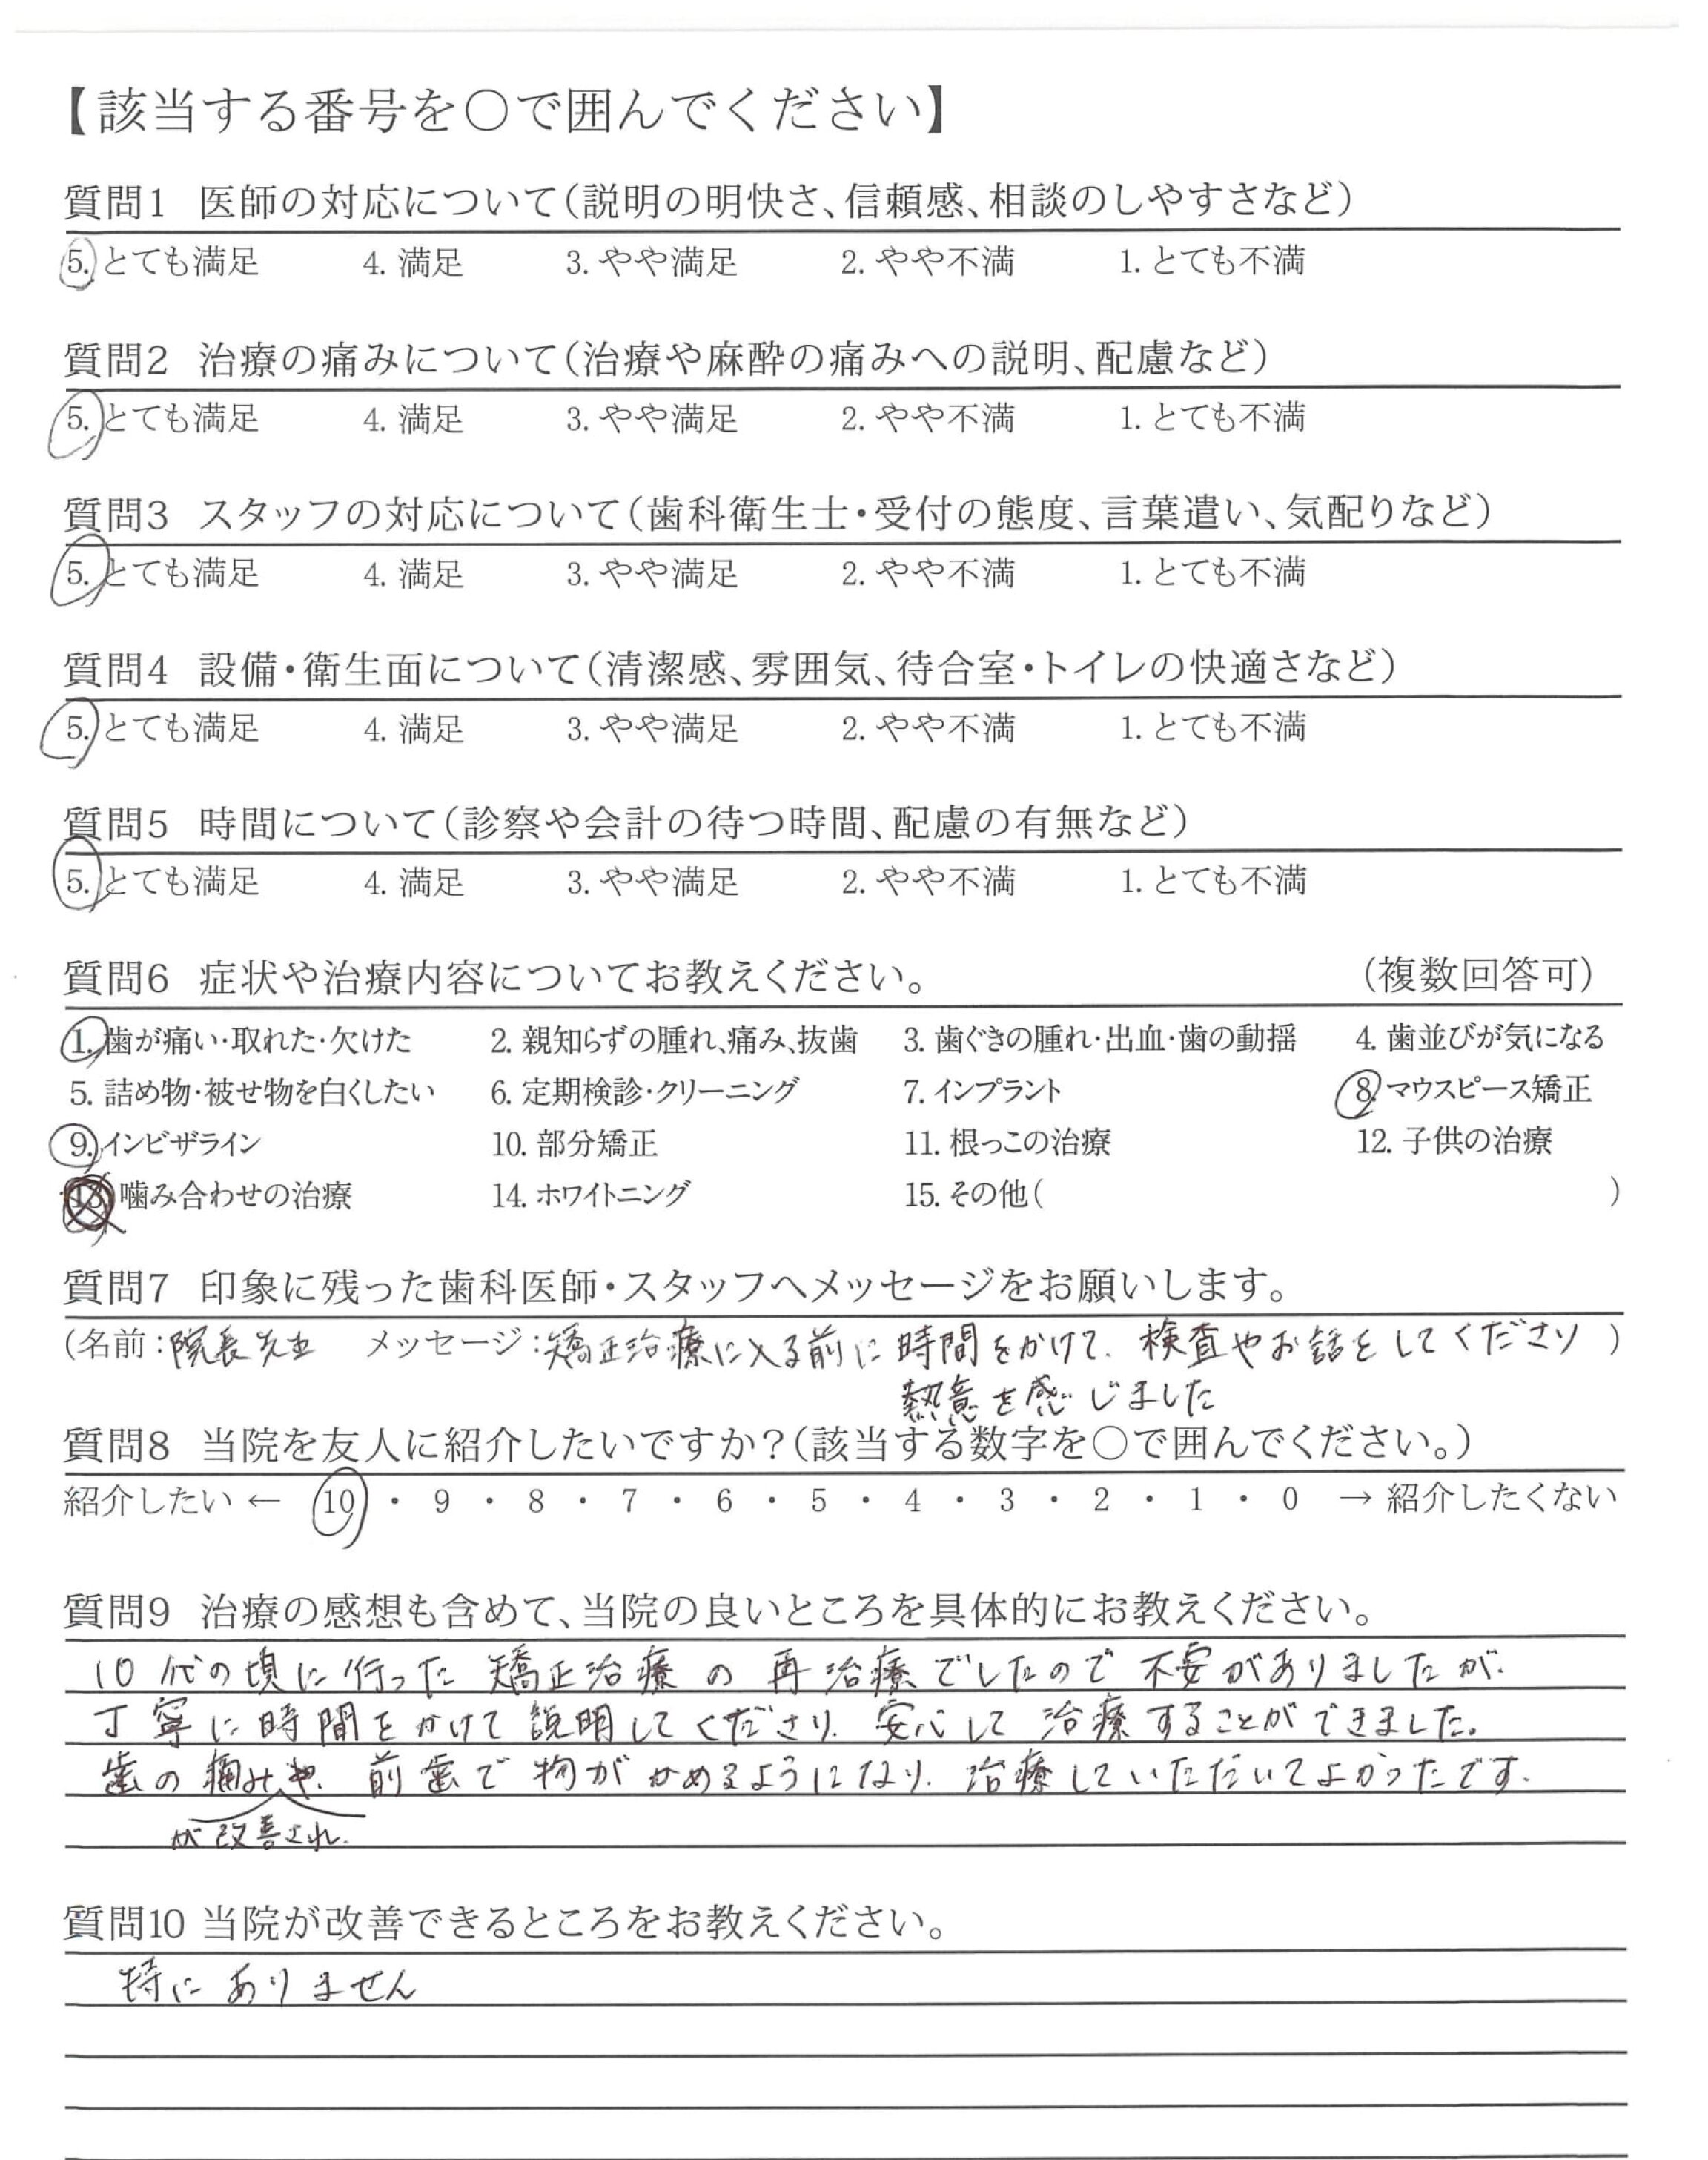 【該当する番号を○で囲んでください】
質問1 医師の対応について(説明の明快さ、信頼感、相談のしやすさなど)
5. とても満足 4. 満足 3. やや満足 2. やや不満 1. とても不満
質問2 治療の痛みについて(治療や麻酔の痛みへの説明、配慮など)
5. とても満足 4. 満足 3. やや満足 2. やや不満 1. とても不満
質問3 スタッフの対応について(歯科衛生士・受付の態度、言葉遣い、気配りなど)
5. とても満足 4. 満足 3. やや満足 2. やや不満 1. とても不満
質問4 設備・衛生面について(清潔感、雰囲気、待合室・トイレの快適さなど)
5. とても満足 4. 満足 3. やや満足 2. やや不満 1. とても不満
質問5 時間について(診察や会計の待つ時間、配慮の有無など)
5. とても満足 4. 満足 3. やや満足 2. やや不満 1. とても不満
質問6 症状や治療内容についてお教えください。 (複数回答可)
1. 歯が痛い・取れた・欠けた 2. 親知らずの腫れ、痛み、抜歯 3. 歯ぐきの腫れ・出血・歯の動揺 4. 歯並びが気になる
5. 詰め物・被せ物を白くしたい 6. 定期検診・クリーニング 7. インプラント 8. マウスピース矯正
9. インビザライン 10. 部分矯正 11. 根っこの治療 12. 子供の治療
13. 噛み合わせの治療 14. ホワイトニング 15. その他( )
質問7 印象に残った歯科医師・スタッフへメッセージをお願いします。
(名前:院長先生 メッセージ:矯正治療に入る前に時間をかけて、検査やお話をしてくださり )
熱意を感じました
質問8 当院を友人に紹介したいですか?(該当する数字を○で囲んでください。)
紹介したい ← 10 ・ 9 ・ 8 ・ 7 ・ 6 ・ 5 ・ 4 ・ 3 ・ 2 ・ 1 ・ 0 → 紹介したくない
質問9 治療の感想も含めて、当院の良いところを具体的にお教えください。
10代の頃に行った矯正治療の再治療でしたので不安がありましたが、
丁寧に時間をかけて説明してくださり、安心して治療することができました。
歯の痛みや、前歯で物がかめるようになり、治療していただいてよかったです。
が改善され、
質問10 当院が改善できるところをお教えください。
特にありません